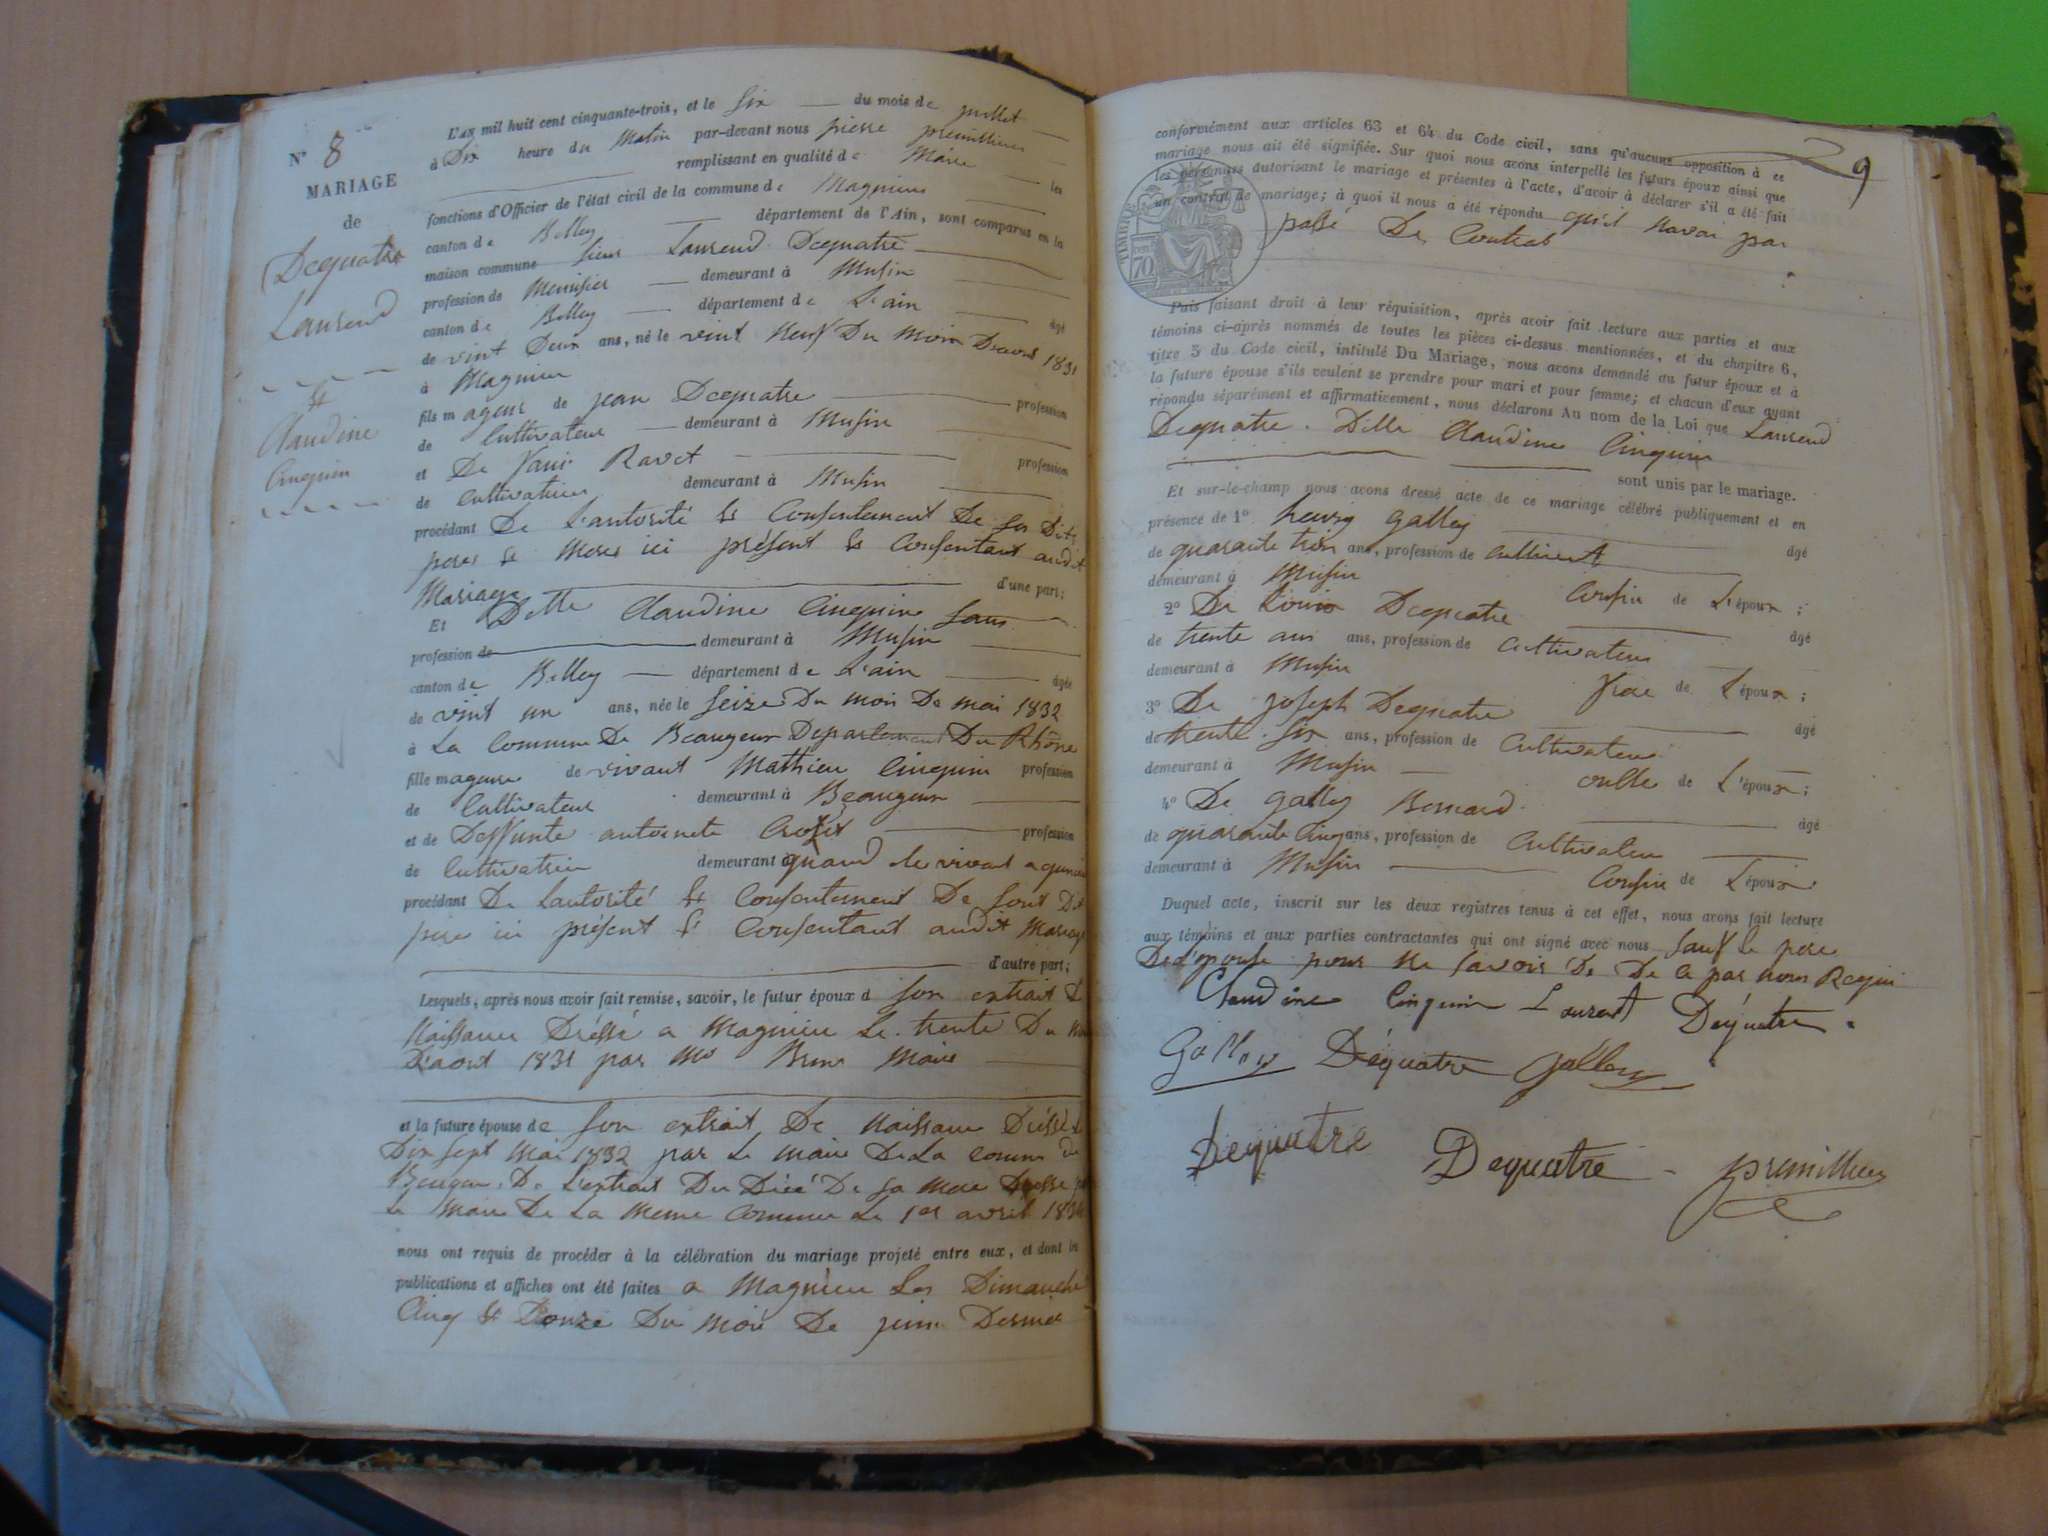 N° 8
MARIAGE
de
Dequatre
Laurend
et
Claudine
Cinquin
L'AN mil huit cent cinquante-trois, et le six du mois de juillet
à Dix heure du Matin par-devant nous pierre premillieu
remplissant en qualité de Maire les
fonctions d'Officier de l'état civil de la commune de Magnieu
canton de Belley département de l'Ain, sont comparus en la
maison commune sieur Laurend Dequatre
profession de Menisier demeurant à Musin
canton de Belley département de L'ain âgé
de vint Deux ans, né le vint neuf Du mois Daout 1831
à Magnieu
fils mageur de jean Dequatre profession
de Cultivateur demeurant à Musin
et De Ravet profession
de cultivatrice demeurant à Musin
procédant De L'autorité et Consentement De ses Dits
pere et Mere ici présent et Consentant audit
Mariage d'une part;
Et Delle Claudine Cinquin Sans
profession de demeurant à Musin
canton de Belley département de L'ain âgée
de vint un ans, née le seize Du mois De mai 1832
à La Commune De Beaugeur Departement Du Rhône
fille mageure de vivant Mathieu Cinquin profession
de Cultivateur demeurant à Beaugeur
et de Deffunte antoinete profession
de Cultivatrice demeurant à quand le vivant
procédant De Lautorité et Consentement De sont Dit
pere ici présent et Consentant audit Mariage
d'autre part;
Lesquels, après nous avoir fait remise, savoir, le futur époux d son extrait de
Naissance Dréssé a Magnieu Le trente Du mois
D'aout 1831 par Mr Brun Maire
et la future épouse de son extrait De Naissance Dréssé le
Dix sept Mai 1832 par Le maire De La comune de
Beugeur De L'extrait Du Décé De sa mere Dresse par
Le Maire De La Meme Commune Le 1er avril
nous ont requis de procéder à la célébration du mariage projeté entre eux, et dont les
publications et affiches ont été faites a Magnieu Les Dimanche
Cinq et Douze Du mois De juin Dernier
9
conformément aux articles 63 et 64 du Code civil, sans qu'aucune opposition à ce
mariage nous ait été signifiée. Sur quoi nous avons interpellé les futurs époux ainsi que
les personnes autorisant le mariage et présentes à l'acte, d'avoir à déclarer s'il a été fait
un contrat de mariage; à quoi il nous a été répondu qu'il navai pas
passé De Contrat
TIMBRE
70
Puis faisant droit à leur réquisition, après avoir fait lecture aux parties et aux
témoins ci-après nommés de toutes les pièces ci-dessus mentionnées, et du chapitre 6,
titre 5 du Code civil, intitulé Du Mariage, nous avons demandé au futur époux et à
la future épouse s'ils veulent se prendre pour mari et pour femme; et chacun d'eux ayant
répondu séparément et affirmativement, nous déclarons Au nom de la Loi que Laurend
Dequatre. Delle Claudine Cinquin
sont unis par le mariage.
Et sur-le-champ nous avons dressé acte de ce mariage célébré publiquement et en
présence de 1° henry galley âgé
de quarante trois ans, profession de
demeurant à Musin Cousin de L'époux;
2° De Louis Dequatre âgé
de trente ans ans, profession de cultivateur
demeurant à Musin frere de L'époux;
3° De joseph Dequatre âgé
de trente six ans, profession de Cultivateur
demeurant à Musin oncle de L'époux;
4° De galley Bernard âgé
de quarante Cinq ans, profession de Cultivateur
demeurant à Musin Cousin de L'époux
Duquel acte, inscrit sur les deux registres tenus à cet effet, nous avons fait lecture
aux témoins et aux parties contractantes qui ont signé avec nous sauf le pere
De l'épouse pour ne savoir De De ce par nous Requi
Claudine Cinquin Laurent Dequatre
Galley Déquatre galley
Dequatre Dequatre premillieu